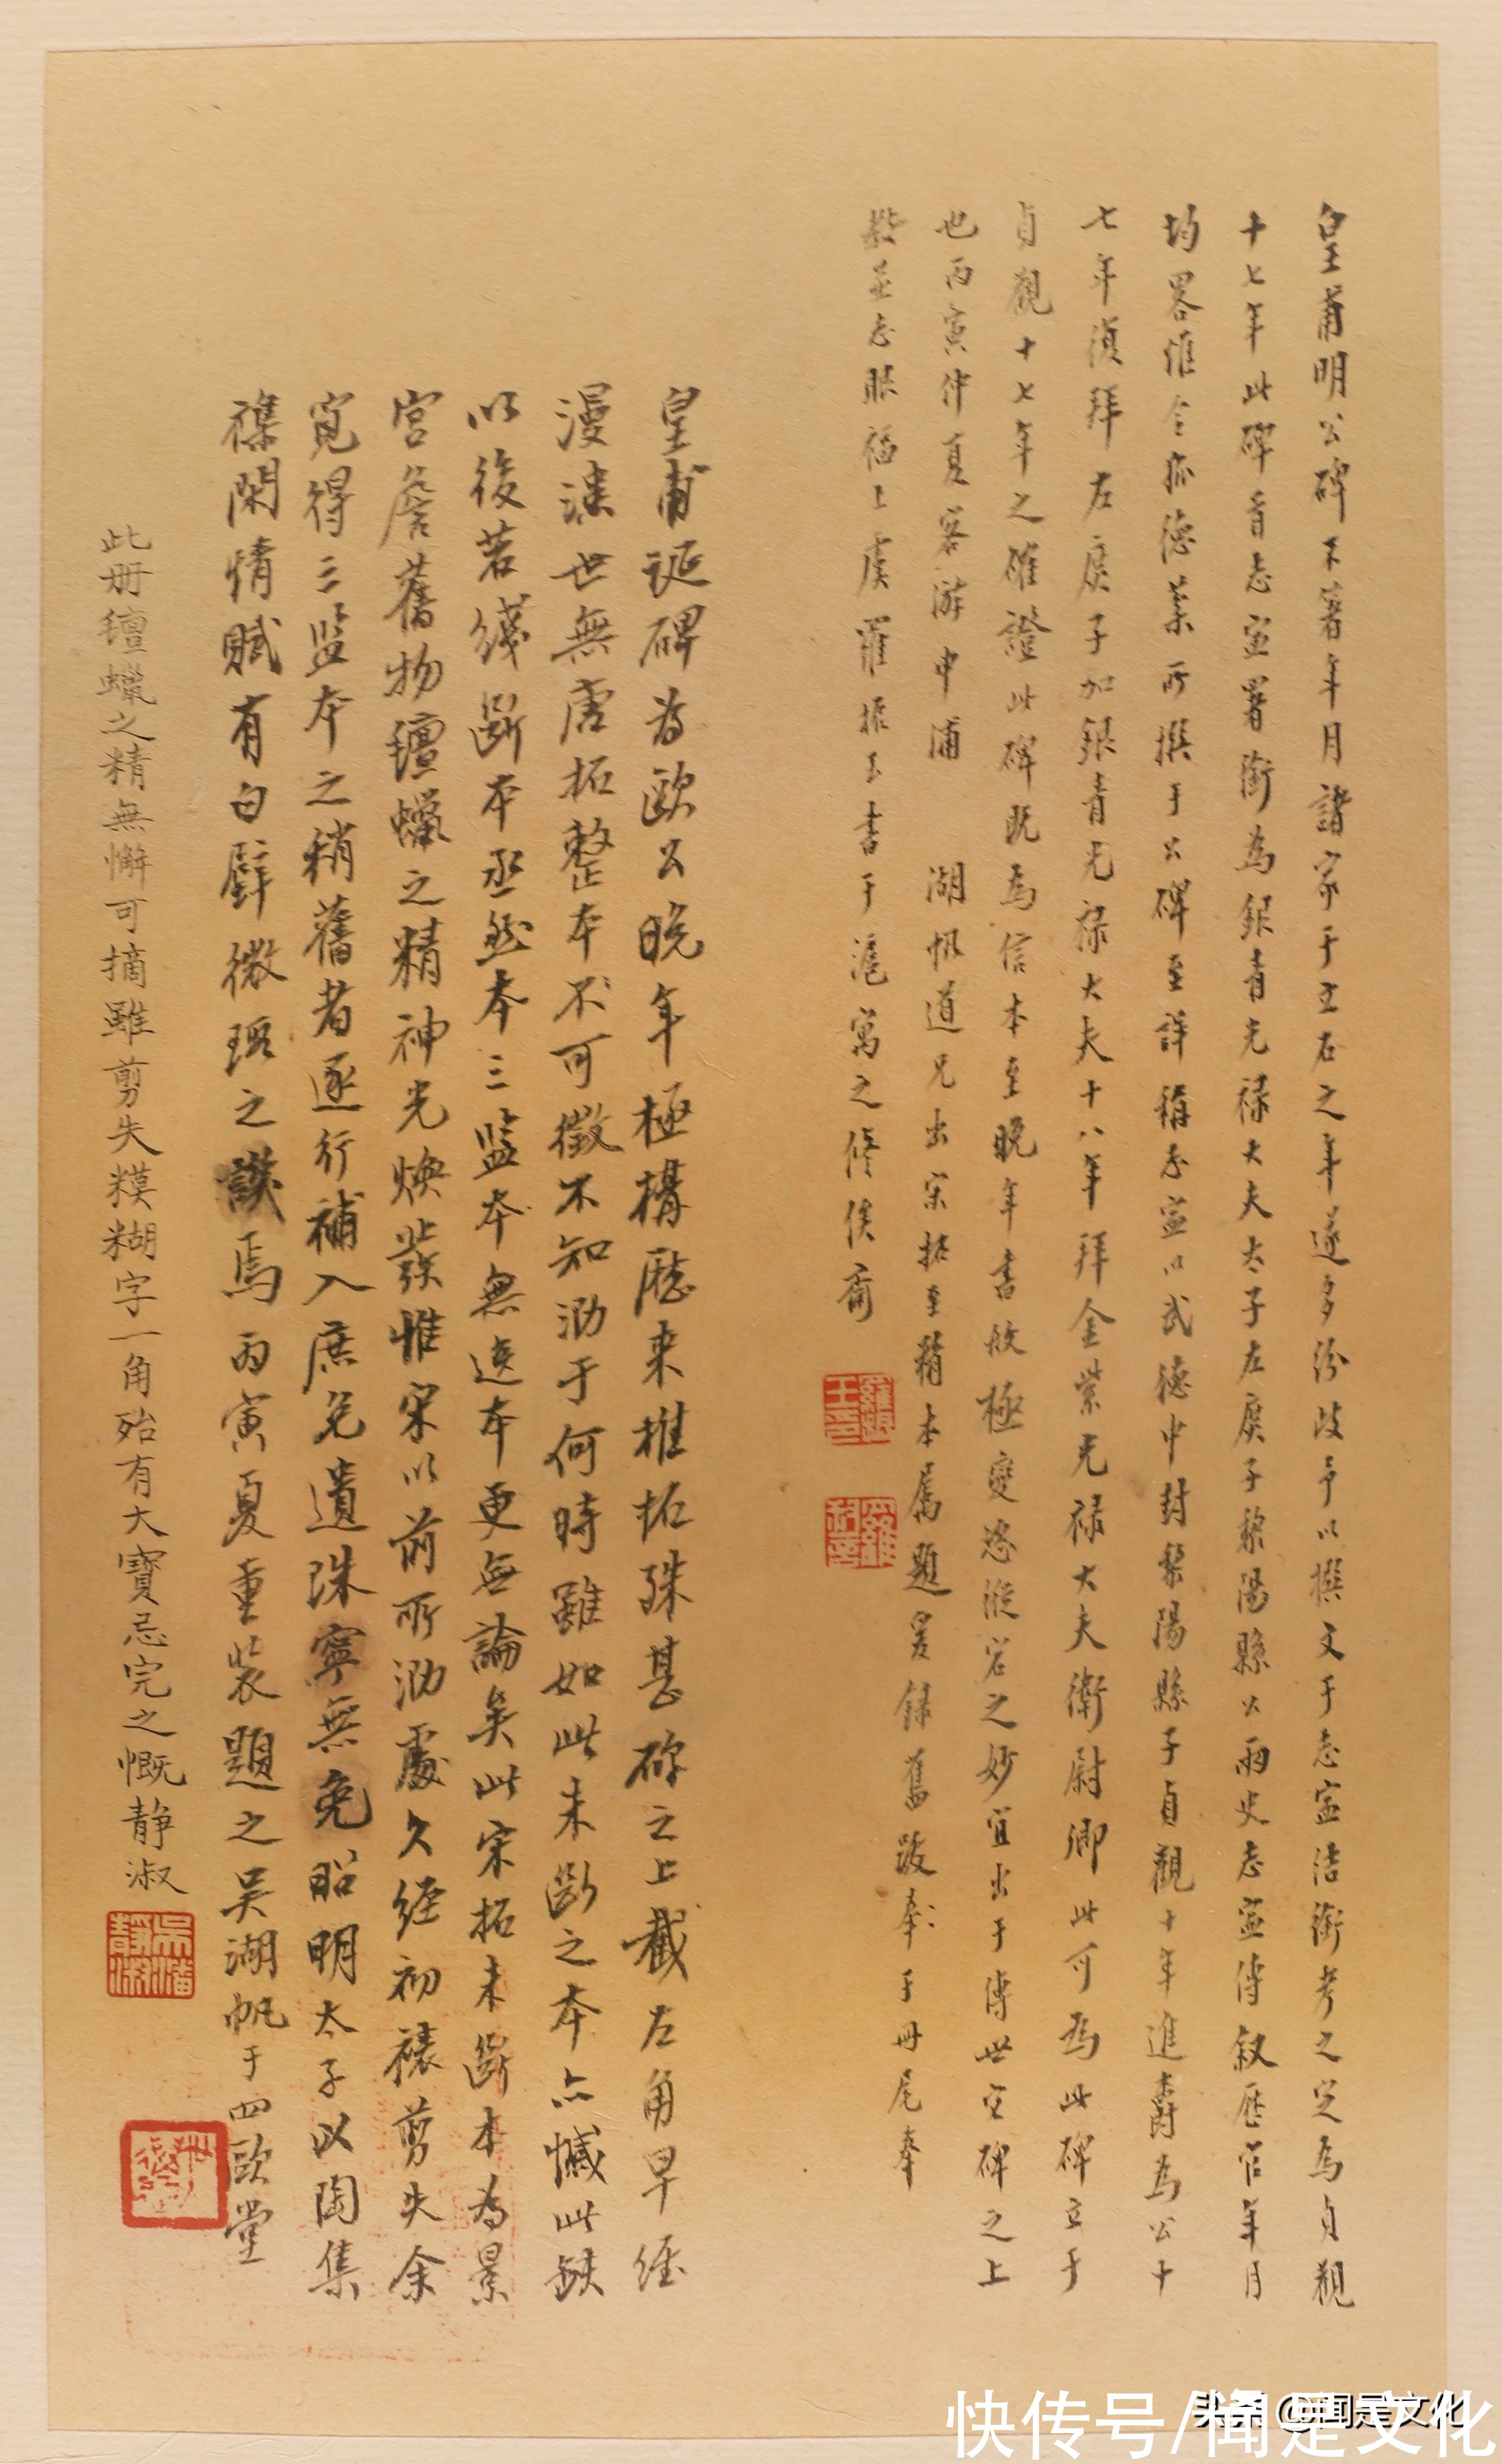 皇甫明公碑不著年月諸家于立石之年遂多紛歧予以撰文于志寧結銜考之定為貞觀
十七年此碑首志寧署銜為銀青光祿大夫太子左庶子黎陽縣公兩史志寧傳敘歷官年月
均畧惟令狐德棻所撰于公碑至詳稱志寧以武德中封黎陽縣子貞觀十年進爵為公十
七年復拜左庶子加銀青光祿大夫十八年拜金紫光祿大夫衛尉卿此可為此碑立于
貞觀十七年之確證此碑既為信本至晚年書故極變怒縱宕之妙宜出于傳世它碑之上
也丙寅仲夏客游申浦
湖帆道兄出宋拓至精本屬題爰錄舊跋奉于冊尾奉
教並志眼福上虞羅振玉書于滬寓之修俟齋
羅振玉印
皇甫誕碑為歐公晚年極構歷來椎拓殊甚碑之上截右角早經
漫漶世無唐拓整本不可徵不知泐于何時雖如此未斷之本亦憾此缺
以後若綫斷本丞然本三監本無逸本更無論矣此宋拓未斷本為景
宮詹舊物氊蠟之精神光煥發惟宋以前所泐處久經初裱剪失余
覓得三監本之稍舊者逐行補入庶免遺珠寧無免昭明太子以陶集
襍閑情賦有白璧微瑕之誚焉丙寅夏重裝題之吳湖帆于四歐堂
此册氊蠟之精無懈可摘雖剪失糢糊字一角殆有大寶忌完之慨静淑
吳潘静淑
快传号/闻是文化
头条 @闻是文化